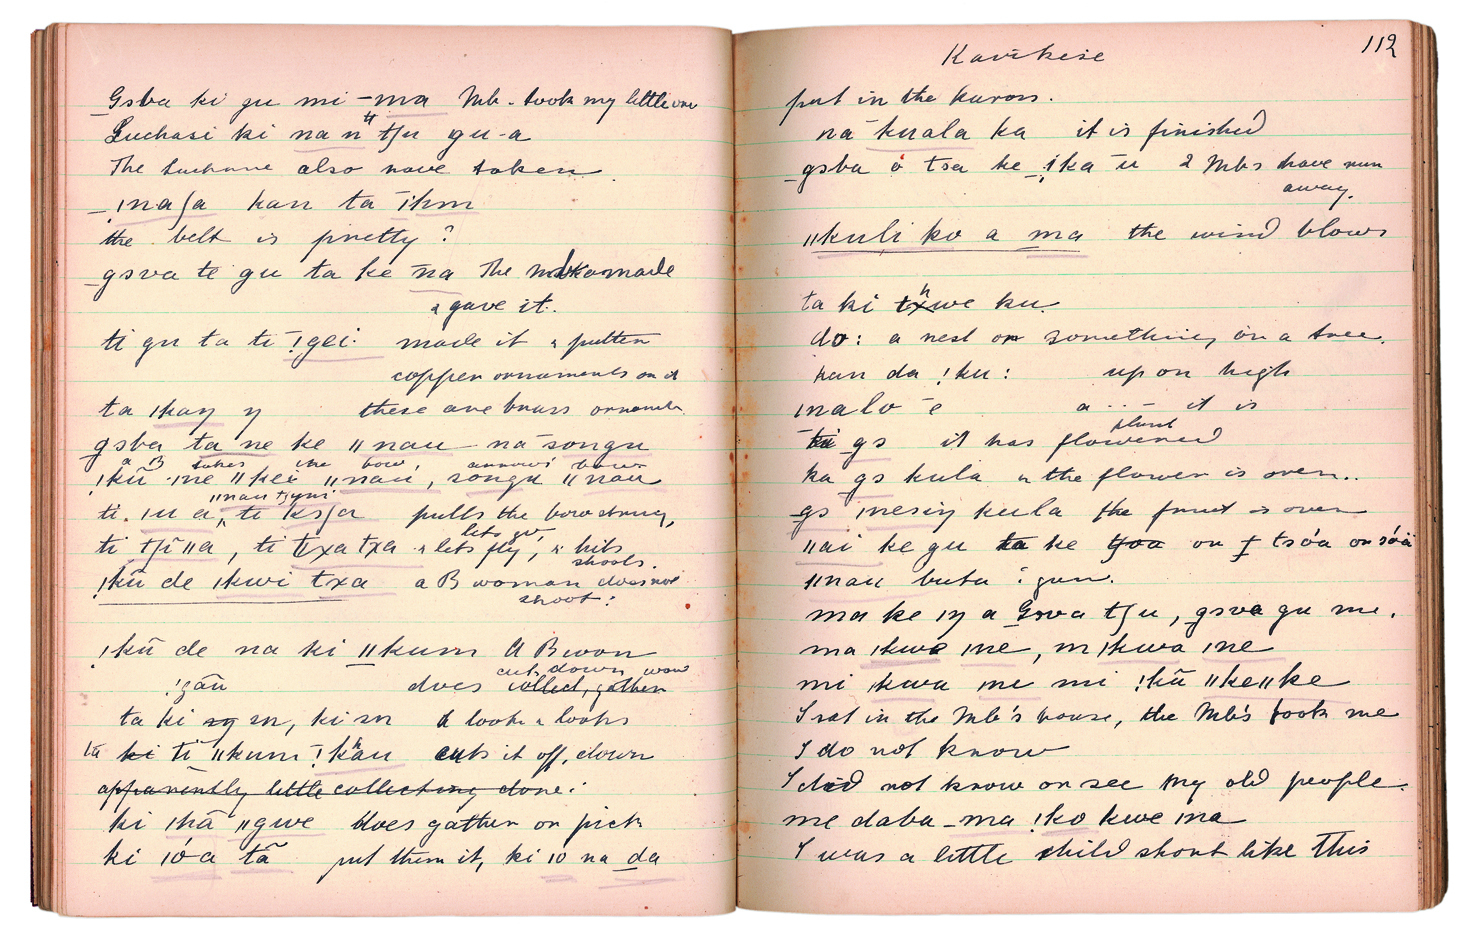 Gsba ki gu mi-ma Mb. took my little one
Luchasi ki na n tʃu gu-a
The Luchane also have taken
ǃnaʃa kan ta īhm
the belt is pretty?
gsva te gu ta ke na The made
& gave it.
ti gu ta ti ǃgei. made it & putten
copper ornaments on it
ta ǀkay y these are brass ornaments
gsba ta ne ke ǁnau na songu
a B takes the bow, arrows bow
ǃkū ǀne ǁkei ǁnau, songu ǁnau
ǁnau tʃuni
ti. ǀu a, ti ksʃa pulls the bow string,
lets go,
ti tʃīǁa, ti txa txa & lets fly, & hits
shoots.
ǃkū de ǀkwi txa a B woman does not
shoot:
ǃkū de na ki ǁkum A B won
cut down wood
ǃgāu does collect, gather
ta ki sn, ki sn & looks & looks
ta ki ti ǁkum ǃkhau cuts it off, down
apparently little collecting done:
ki ǀhā ǁgwe does gather or pick
ki ǀóa tā put them it, ki ǀo na da
Kavikise
112
put in the kaross.
na kuala ka it is finished
gsba o tsa ke ǃka ū 2 Mbs have run
away.
ǁkuli ko a ma the wind blows
ta ki we ku.
do: a nest or something on a tree.
kan da ǃku: up on high
ǀnalo e a . . - it is
plant
ki gs it has flowered
ka gs kula & the flower is over..
gs ǀnesiy kula the fruit is over
ǁai ke gu ta ke tʃoa or ʃ tsóa or sóa
ǁnau buta: gun.
ma ke ǀy a Gsva tʃu, gsva gu me.
ma ǀkwa ǀne, m ǀkwa ǀne
mi ǀkwa ǀne mi ǃkū ǁkeǁke
I sat in the Mb's house, the Mb's took me
I do not know
I did not know or see my old people.
me daba-ma ǃko kwe ǀna
I was a little child short like this